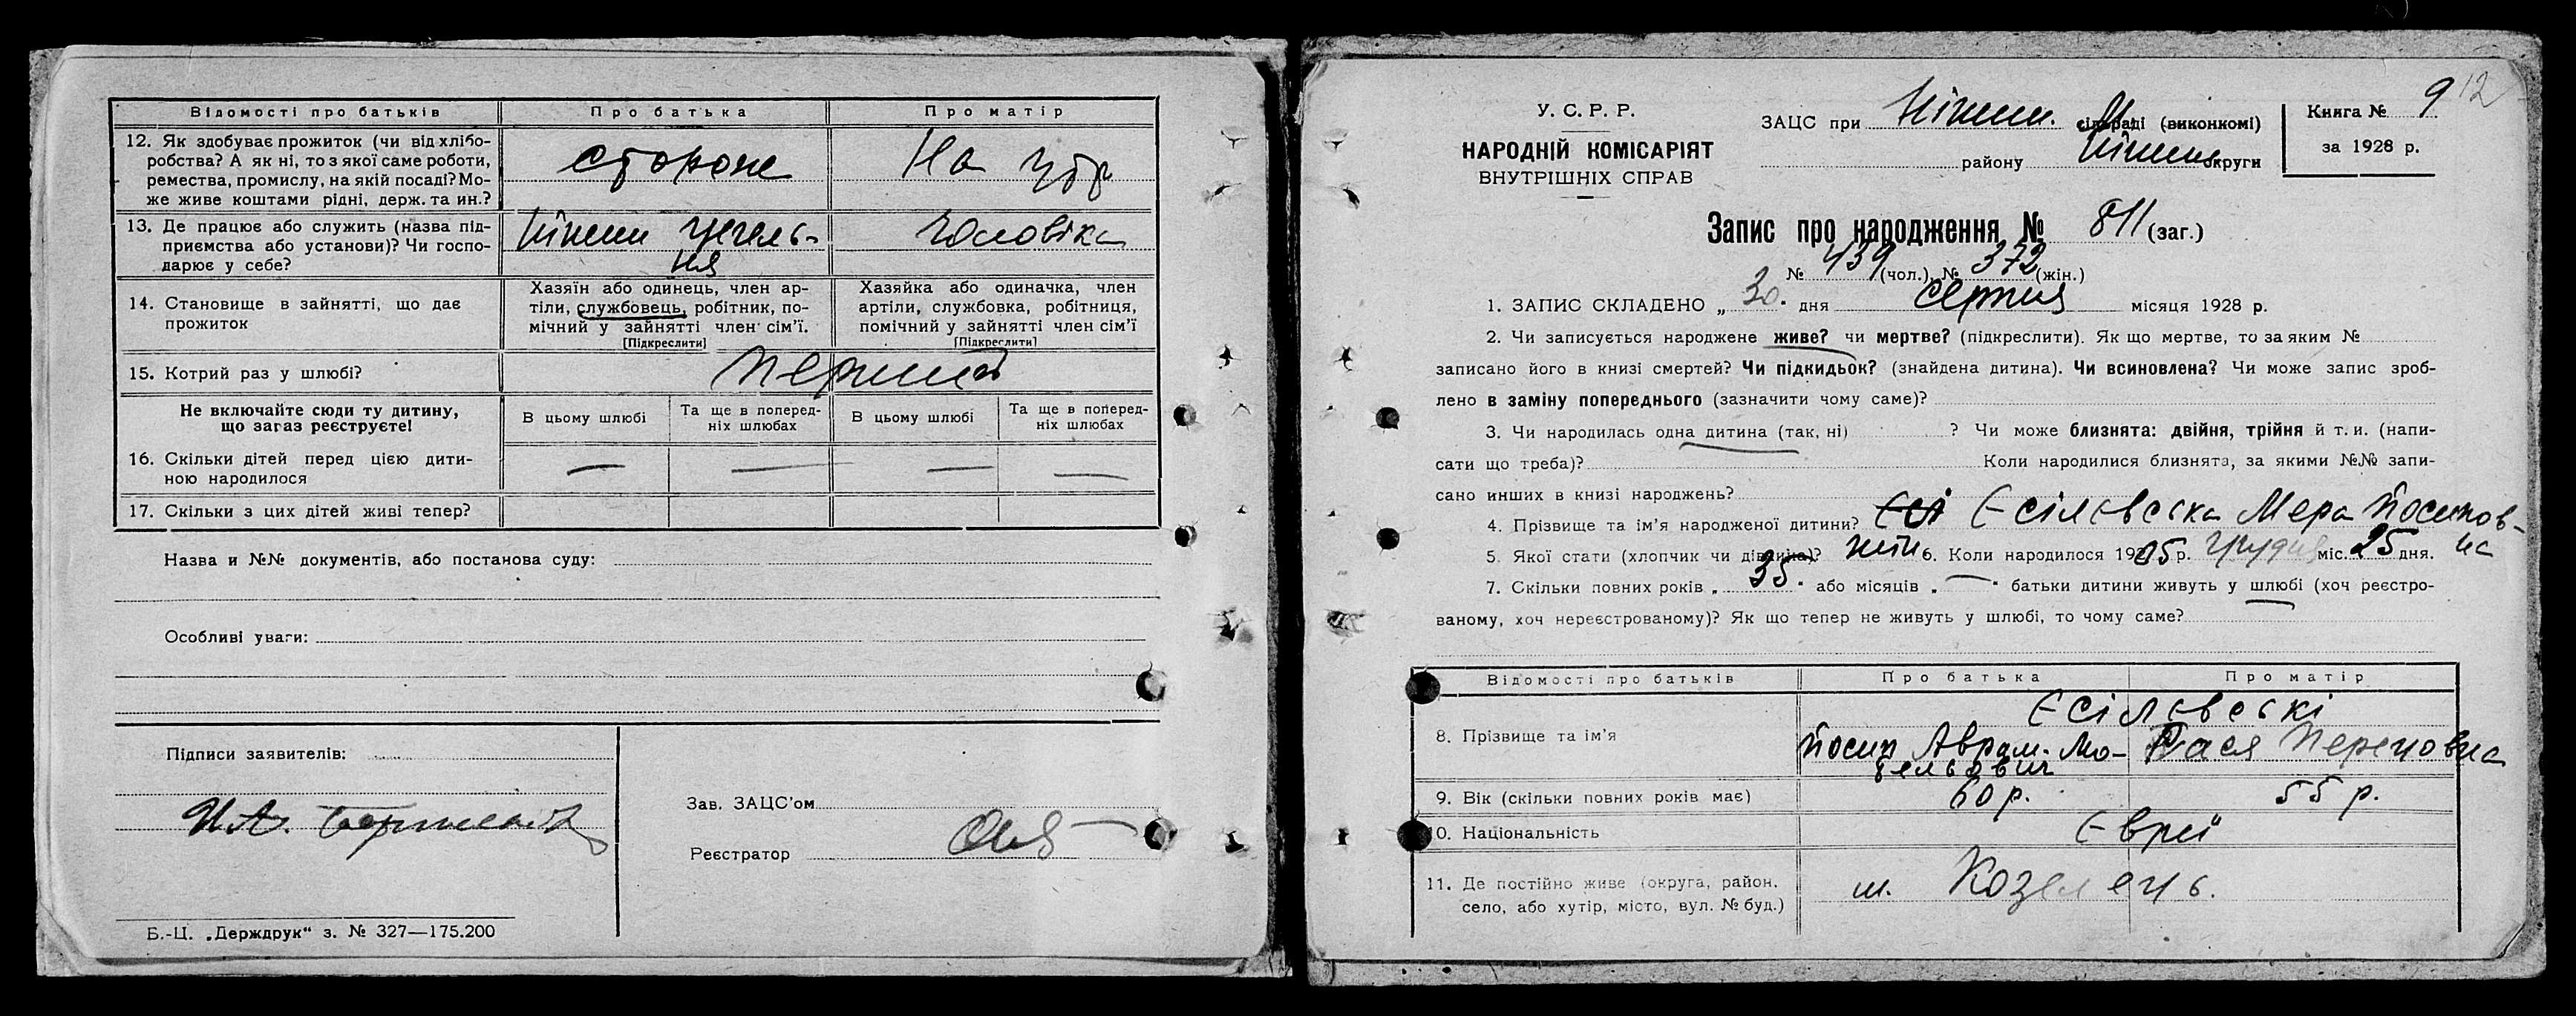 Відомості про батьків Про батька Про матір
12. Як здобуває прожиток (чи від хлібо-
робства? А як ні, то з якої саме роботи, сторож На утр
ремества, промислу, на якій посаді? Мо-
же живе коштами рідні, держ. та ин.?
13. Де працює або служить (назва під- Ніжин цегель- чоловіка
приємства або установи)? Чи госпо- ня
дарює у себе?
14. Становище в зайнятті, що дає
прожиток
Хазяїн або одинець, член ар-
тіли, службовець, робітник, по-
мічний у зайнятті член сім'ї.
[Підкреслити]
Хазяйка або одиначка, член
артіли, службовка, робітниця,
помічний у зайнятті член сім'ї
[Підкреслити]
15. Котрий раз у шлюбі? перший
Не включайте сюди ту дитину,
що загаз реєструєте!
В цьому шлюбі
Та ще в поперед-
ніх шлюбах
В цьому шлюбі
Та ще в поперед-
ніх шлюбах
16. Скільки дітей перед цією дити- — — — —
ною народилося
17. Скільки з цих дітей живі тепер?
Назва и №№ документів, або постанова суду:
Особливі уваги:
Підписи заявителів:
И.А.
Зав. ЗАЦС'ом
Реєстратор
Б.-Ц. „Держдрук“ з. № 327—175.200
У. С. Р. Р.
НАРОДНІЙ КОМІСАРІЯТ
ВНУТРІШНІХ СПРАВ
ЗАЦС при Ніжин. М. сільраді (виконкомі)
району Ніжин округи
Книга № 9
12
за 1928 р.
Запис про народження № 811 (заг.)
№ 439 (чол.), № 372 (жін.)
1. ЗАПИС СКЛАДЕНО „ 30. дня серпня місяця 1928 р.
2. Чи записується народжене живе? чи мертве? (підкреслити). Як що мертве, то за яким №
записано його в книзі смертей? Чи підкидьок? (знайдена дитина). Чи всиновлена? Чи може запис зроб-
лено в заміну попереднього (зазначити чому саме)?
3. Чи народилась одна дитина (так, ні) ? Чи може близнята: двійня, трійня й т. и. (напи-
сати що треба)? Коли народилися близнята, за якими №№ запи-
сано инших в книзі народжень?
4. Прізвище та ім'я народженої дитини? Єсі Єсілєвська Мера Йосипов-
на
5. Якої стати (хлопчик чи дівчина)? жін 6. Коли народилося 1905 р. грудня міс. 25 дня.
7. Скільки повних років „ 35 " або місяців „ — " батьки дитини живуть у шлюбі (хоч реєстро-
ваному, хоч нереєстрованому)? Як що тепер не живуть у шлюбі, то чому саме?
Відомості про батьків Про батька Про матір
Єсілєвські
8. Прізвище та ім'я Йосип Аврам-Мо- Рася Перецовна
тельович
9. Вік (скільки повних років має) 60 р. 55 р.
10. Національність Євреї
11. Де постійно живе (округа, район, м. Козелець.
село, або хутір, місто, вул. № буд.)